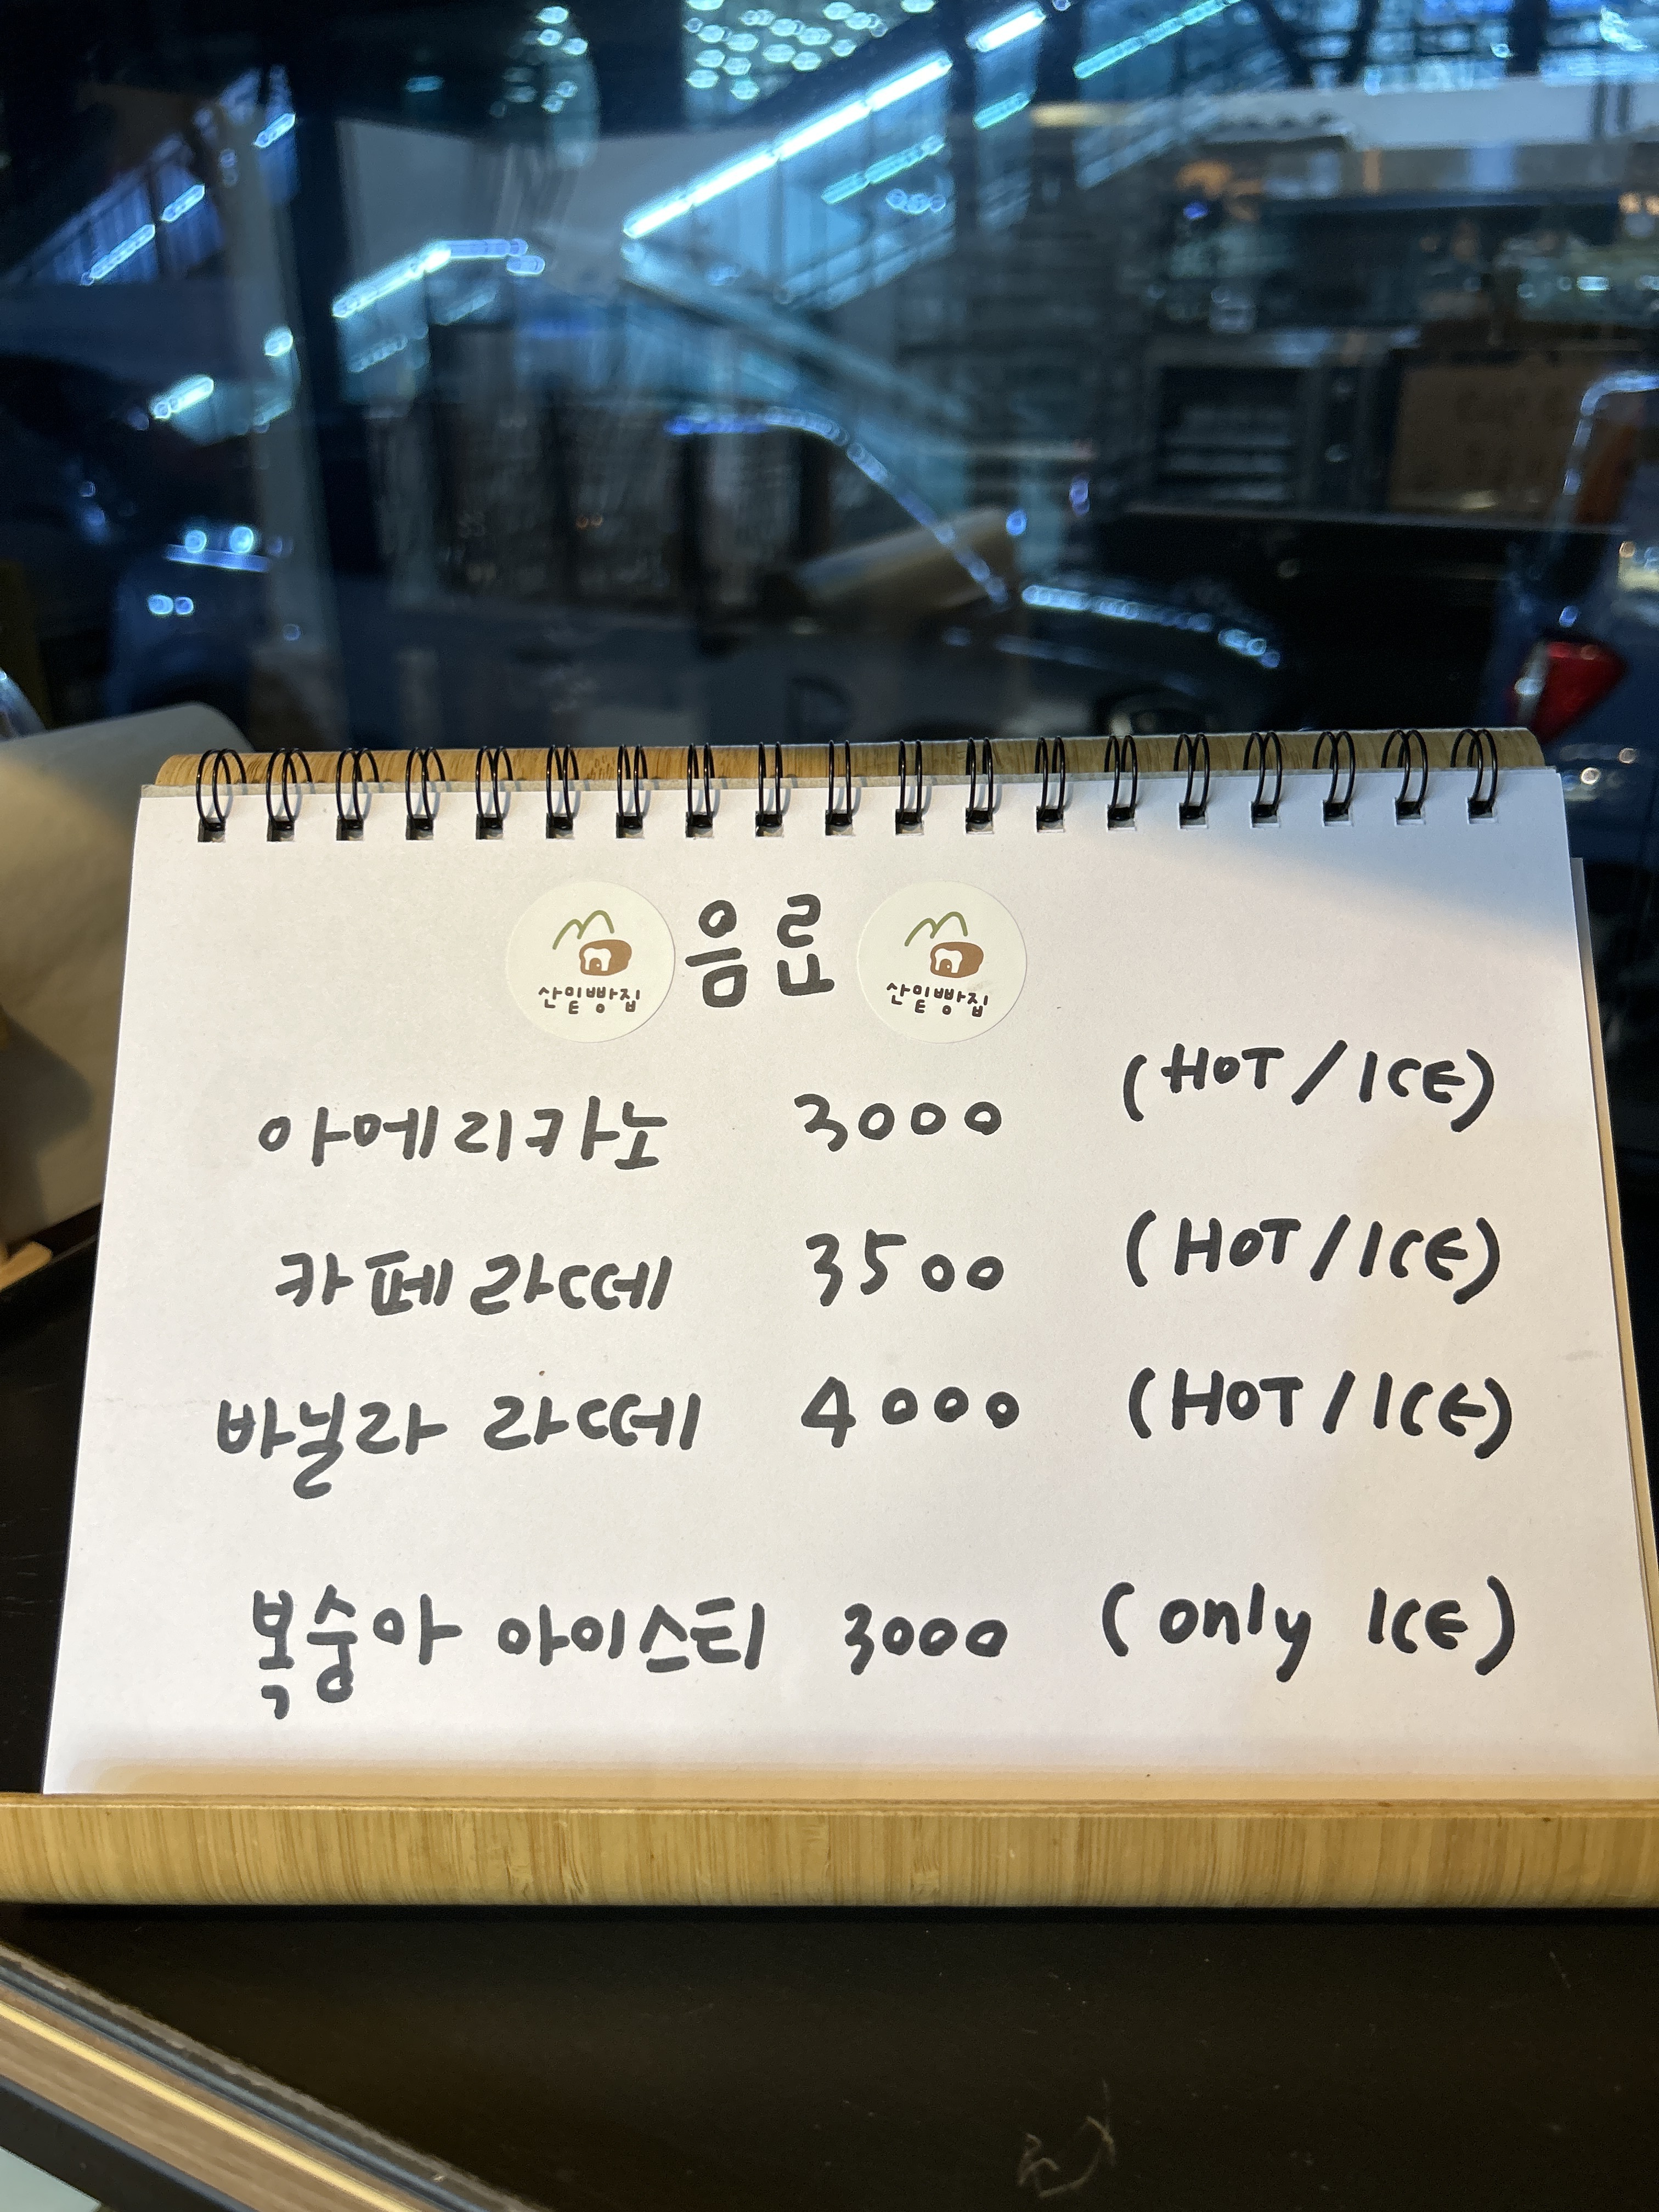 산밑빵집 음료 산밑빵집
아메리카노 3000 (HOT/ICE)
카페라떼 3500 (HOT/ICE)
바닐라 라떼 4000 (HOT/ICE)
복숭아 아이스티 3000 (only ICE)